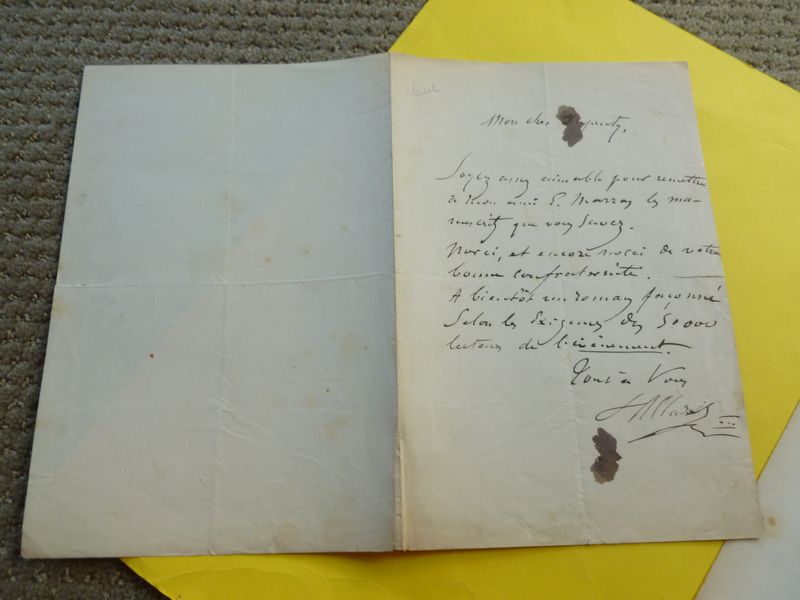 Mon cher
Soyez assez aimable pour remettre
à mon ami E. Marras les ma-
nuscrits que vous savez.
Merci, et encore merci de votre
bonne confraternité.
A bientôt un roman façonné
selon les Exigences des 50000
lecteurs de l'évènement.
Tout à Vous